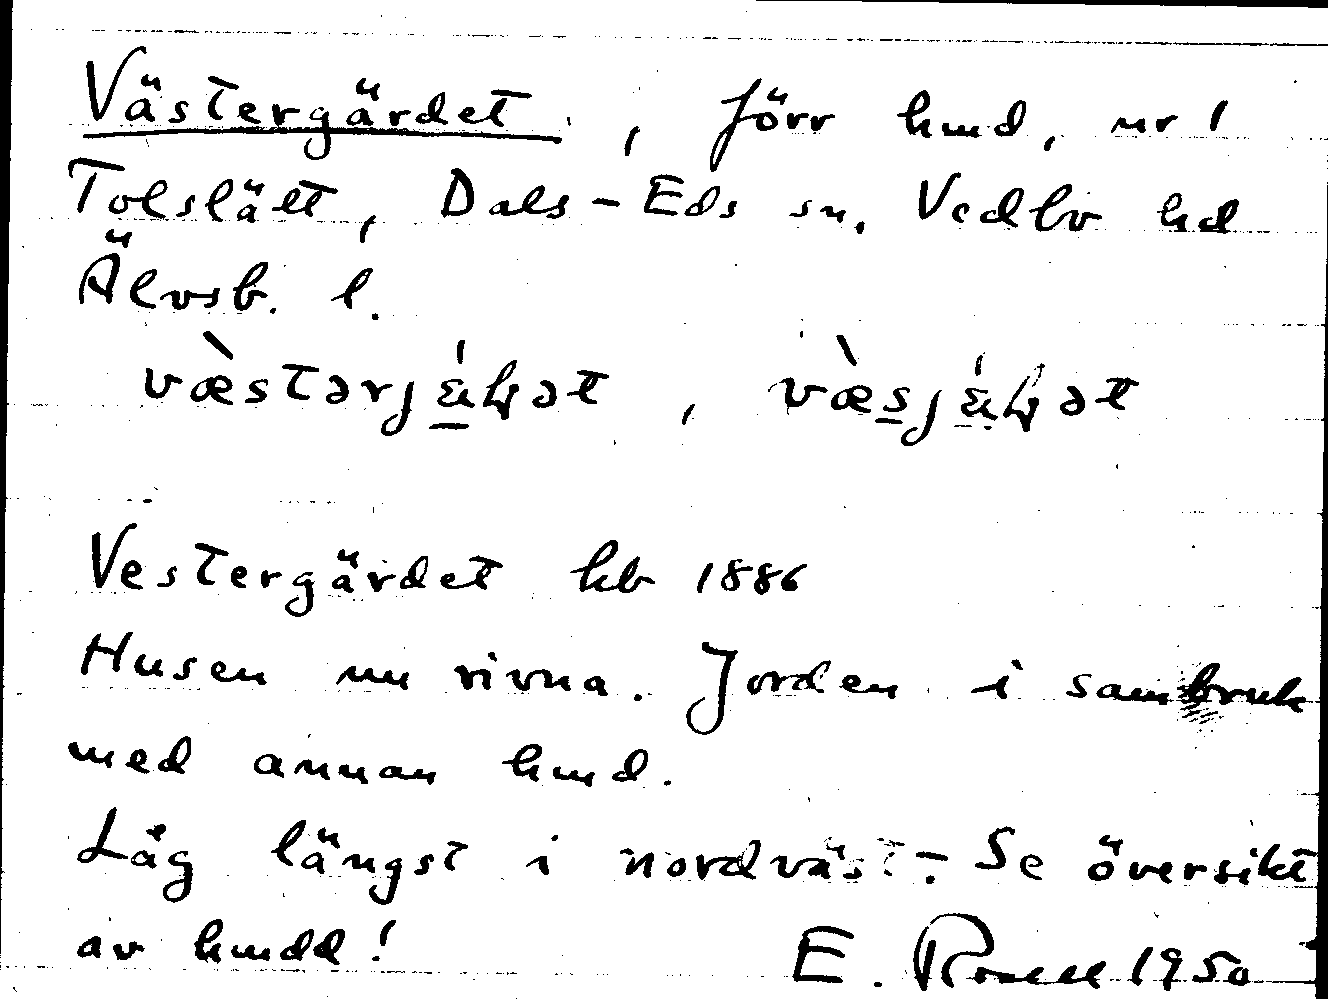 Västergärdet, förr hmd, nr 1
Tolslätt, Dals-Eds sn. Vedbo hd
Älvsb. l.
Vestergärdet hb 1886
Husen nu rivna. Jorden i sambruk
med annan hmd.
Låg längst i nordväst. - Se översikt
av hmdd!
E. Rosell 1950